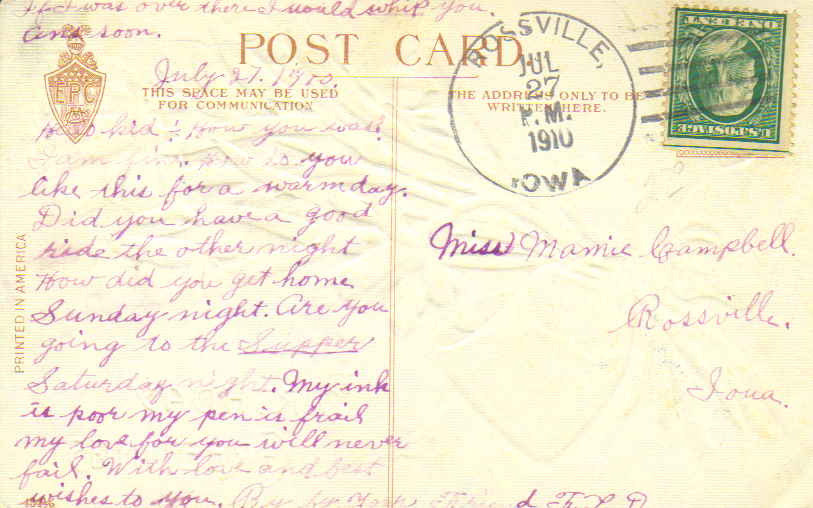 If I was over there I would whip you.
Ans soon.
POST CARD
ROSSVILLE,
JUL
27
P.M.
1910
IOWA
ONE CENT
U.S. POSTAGE
EPC
July 27. 1910.
THIS SPACE MAY BE USED
FOR COMMUNICATION
THE ADDRESS ONLY TO BE
WRITTEN HERE.
Hello kid : How you was?
I am fine. How do you
like this for a warm day.
Did you have a good
ride the other night
How did you get home
Sunday night. Are you
going to the Supper
Saturday night. My ink
is poor my pen is frail
my love for you will never
fail. With love and best
wishes to you. By by Your Friend
Miss Mamie Campbell.
Rossville.
Iowa.
PRINTED IN AMERICA